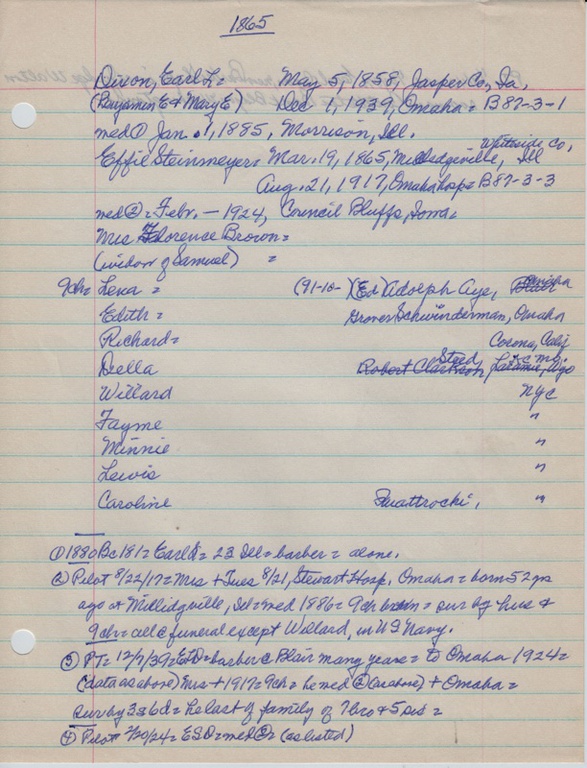 1865
Dixon, Earl L= May 5, 1858, Jasper Co, Ia.
(Benjamin E & Mary E) Dec 1, 1939, Omaha = B87-3-1
med ① Jan. 1, 1885, Morrison, Ill.
Whiteside Co,
Effie Steinmeyer = Mar. 19, 1865, Milledgeville, Ill
Aug. 21, 1917, Omaha hosp = B87-3-3
med ② = Febr. — 1924, Council Bluffs, Iowa =
Mrs Florence Brown =
(widow of Samuel) =
9ch = Lena = (91-10- ) (Ed) Adolph Aye, Omaha
Edith = Grover Schwinderman, Omaha
Richard = Corona, Calif
Steed, K C Mo.
Della Robert Clarkson, Wyo
Willard NYC
Fayme "
Minnie "
Lewis "
Caroline Quattrochi, "
① 1880 Bc 181 = Earl = 23 Ill = barber = alone.
② Pilot 8/22/17 = Mrs + Tues 8/21, Stewart Hosp, Omaha = born 52 yrs
ago at Millidgville, Ill = med 1886 = 9ch born = sur by hus &
9ch = all @ funeral except Willard, in US Navy.
③ PT = 12/7/39 = ELD = barber @ Blair many years = to Omaha 1924 =
(data as above) Mrs + 1917 = 9ch = he med ② (as above) + Omaha =
sur by 3s 6d = he last of family of 7 bro & 5 sis =
④ Pilot 2/20/24 = ESD = med ② = (as listed)